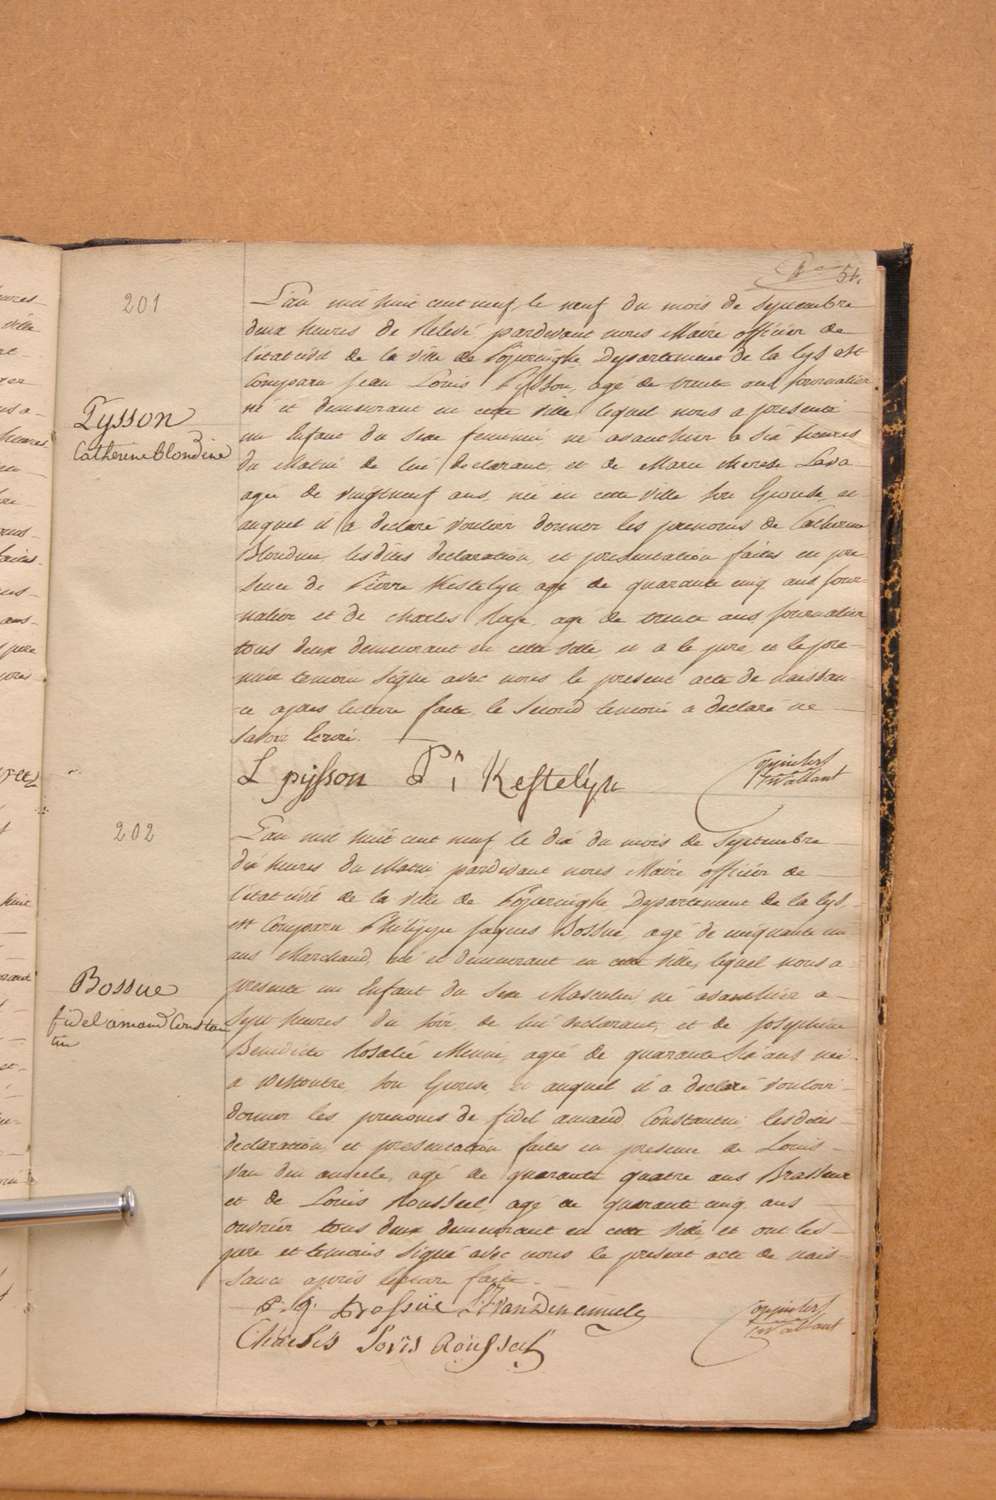 51.
201
L'an mil huit cent neuf, le neuf du mois de Septembre
deux heures de Relevé pardevant nous Maire officier de
l'état civil de la ville de Poperinghe Departement de la lys est
comparu Jean Louis Pysson, agé de trente ans journalier
né et demeurant en cette ville lequel nous a presenté
Pysson
Catherine blondine
un Enfant du sexe feminin né avanthier a six heures
du Matin de lui declarant, et de Marie therese Lava
agée de vingtneuf ans, née en cette ville son Epouse, et
auquel il a declaré vouloir donner les prenoms de Catherine
Blondine, lesdites declaration, et presentation faites en pre
sence de Pierre Kestelyn agé de quarante cinq ans jour-
nalier et de charles agé de trente ans journalier
tous deux demeurant en cette ville et a le pere et le pre-
mier temoin signé avec nous le present acte de naissan-
ce apres lecture faite le second temoin a declaré ne
savoir Ecrire.
L pysson Pr Kestelyn
202
L'an mil huit cent neuf le dix du mois de Septembre
dix heures du Matin pardevant nous Maire officier de
l'état civil de la ville de Poperinghe Departement de la lys,
est comparu Philippe Jaques Bossue agé de cinquante un
ans Marchand, né et demeurant en cette ville, lequel nous a
Bossue
fidel amand Constan
tin
presenté un Enfant du sexe Masculin né avanthier a
sept heures du soir de lui declarant, et de Josephine
Benedicte Rosalie Menne, agée de quarante six ans née
a Westoutre son Epouse, et auquel il a declaré vouloir
donner les prenoms de fidel amand Constantin lesdites
declaration et presentation faites en presence de Louis
agé de quarante quatre ans Brasseur
et de Louis Roussel, agé de quarante cinq ans
ouvrier tous deux demeurant en cette ville et ont les
pere et temoins signé avec nous le present acte de nais-
sance après lecture faite.
P. J. Bossüe
Charles Lovis Roussel